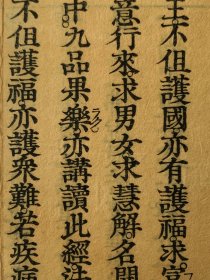 王不但護國亦有護福求富
意行來求男女求慧解名聞
中九品果樂亦講讀此經法
不但護福亦護衆難若疾病